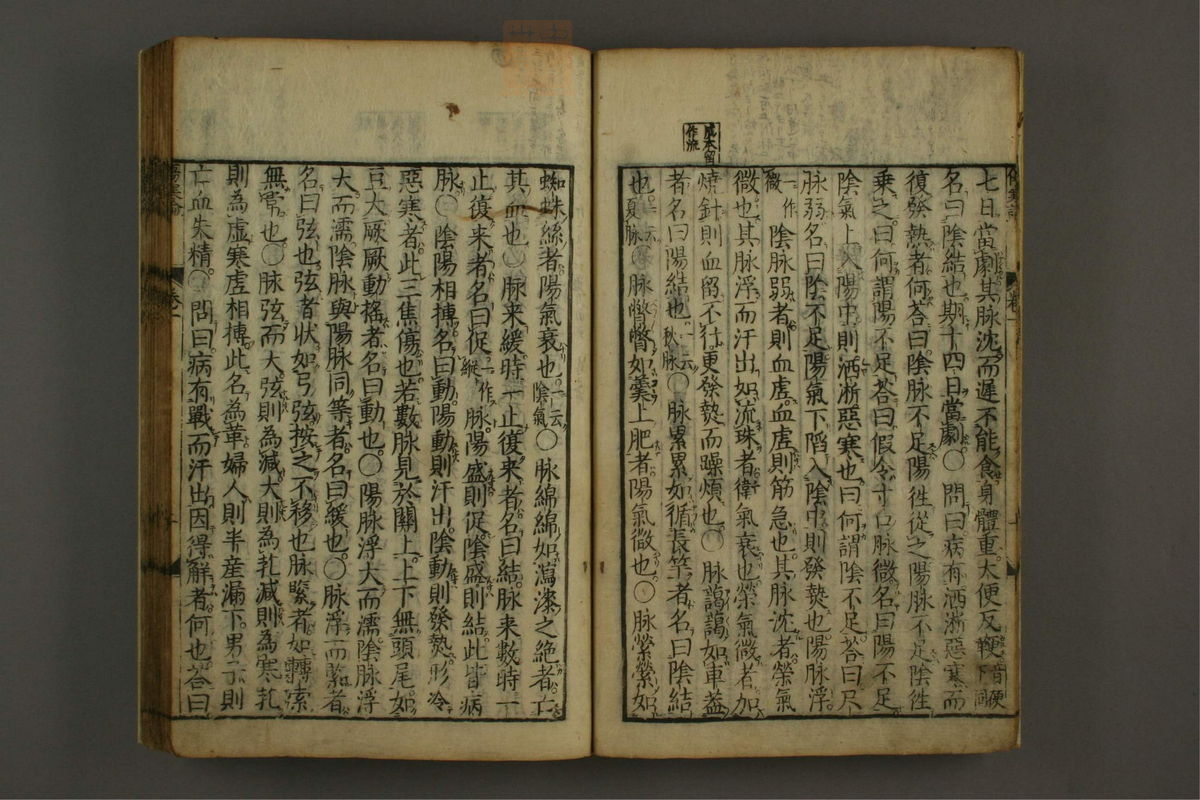 成本留
作流
七日當劇其脉沈而遲不能食身體重大便反鞕音硬下同
名曰陰結也期十四日當劇○問曰病有洒淅惡寒而
復發熱者何荅曰陰脉不足陽徃從之陽脉不足陰徃
乘之曰何謂陽不足荅曰假令寸口脉微名曰陽不足
陰氣上入陽中則洒淅惡寒也曰何謂陰不足荅曰尺
脉弱名曰陰不足陽氣下陷入陰中則發熱也陽脉浮
一作微陰脉弱者則血虗血虗則筋急也其脉沈者榮氣
微也其脉浮而汗出如流珠者衛氣衰也榮氣微者加
燒針則血留不行更發熱而躁煩也○脉藹藹如車蓋
者名曰陽結也一云秋脉○脉累累如循長竿者名曰陰結
也一云夏脉○脉瞥瞥如羹上肥者陽氣微也○脉縈縈如
蜘蛛絲者陽氣衰也一云陰氣○脉綿綿如瀉漆之絶者亡
其血也○脉来緩時一止復来者名曰結脉来數時一
止復来者名曰促一作縱脉陽盛則促陰盛則結此皆病
脉○陰陽相搏名曰動陽動則汗出陰動則發熱形冷
惡寒者此三焦傷也若數脉見於關上上下無頭尾如
豆大厥厥動搖者名曰動也○陽脉浮大而濡陰脉浮
大而濡陰脉與陽脉同等者名曰緩也○脉浮而緊者
名曰弦也弦者状如弓弦按之不移也脉緊者如轉索
無常也○脉弦而大弦則為減大則為芤減則為寒芤
則為虛寒虛相搏此名為革婦人則半産漏下男子則
亡血失精○問曰病有戰而汗出因得解者何也荅曰